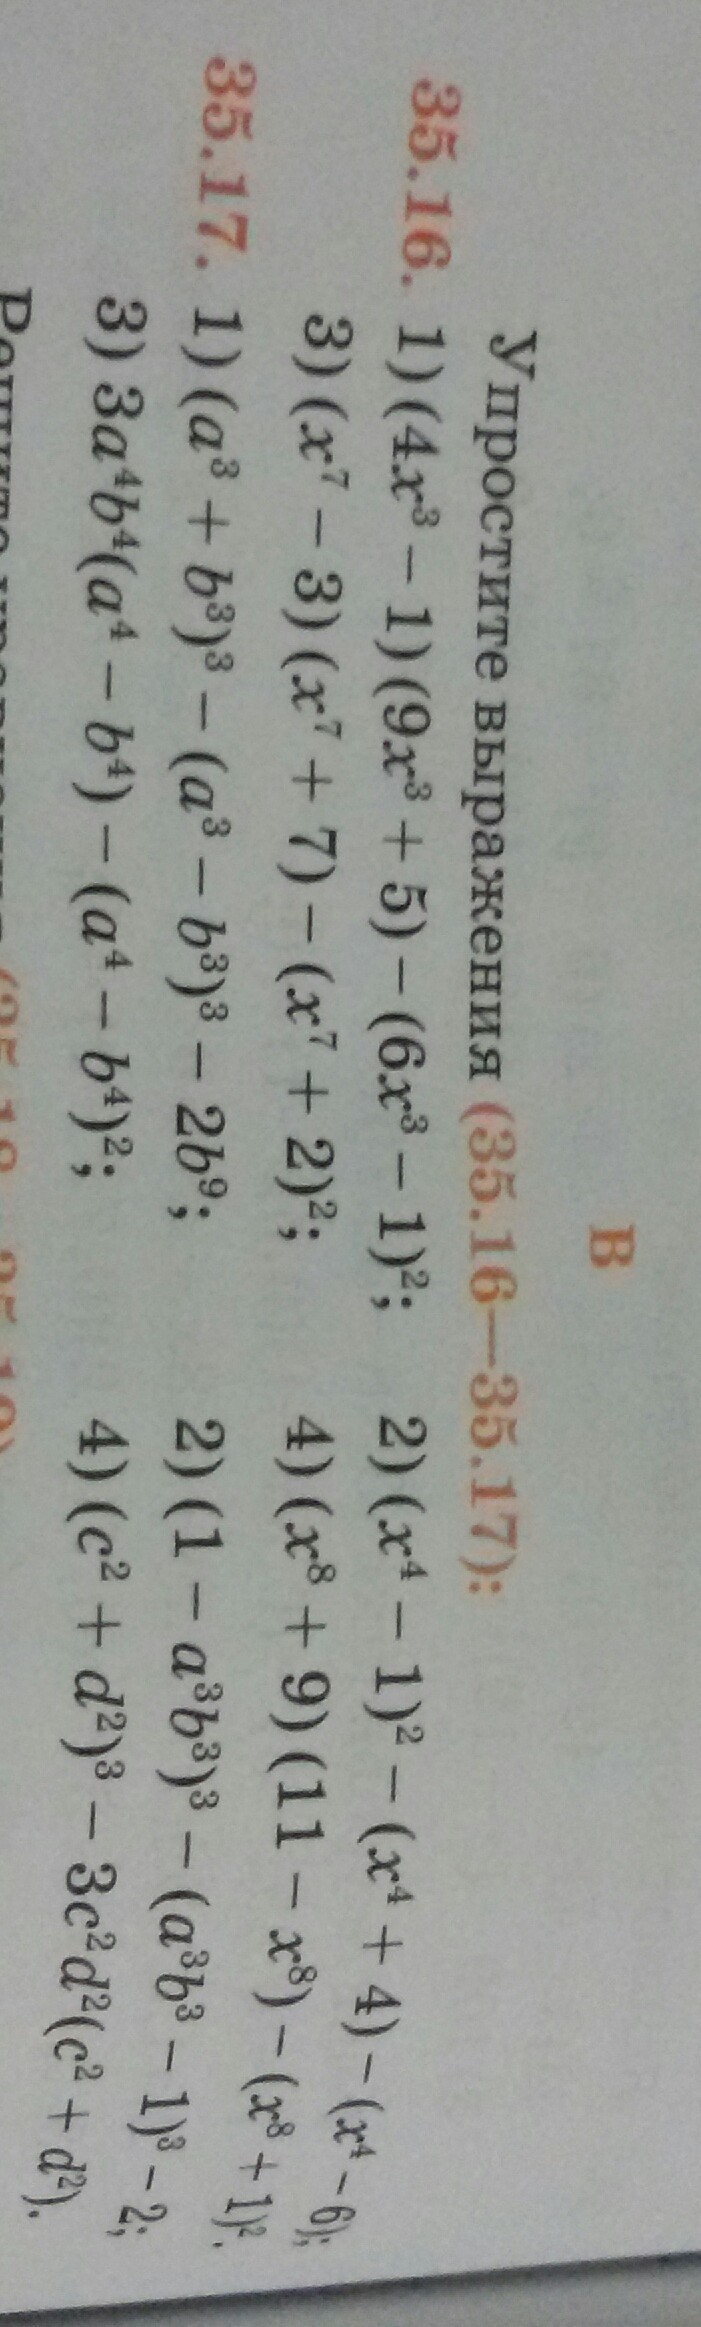 В
Упростите выражения (35.16—35.17):
35.16. 1) (4x³ – 1)(9x³ + 5) – (6x³ – 1)²; 2) (x⁴ – 1)² – (x⁴ + 4) – (x⁴ – 6);
3) (x⁷ – 3)(x⁷ + 7) – (x⁷ + 2)²; 4) (x⁸ + 9)(11 – x⁸) – (x⁸ + 1)².
35.17. 1) (a³ + b³)³ – (a³ – b³)³ – 2b⁹; 2) (1 – a³b³)³ – (a³b³ – 1)³ – 2;
3) 3a⁴b⁴(a⁴ – b⁴) – (a⁴ – b⁴)²; 4) (c² + d²)³ – 3c²d²(c² + d²).